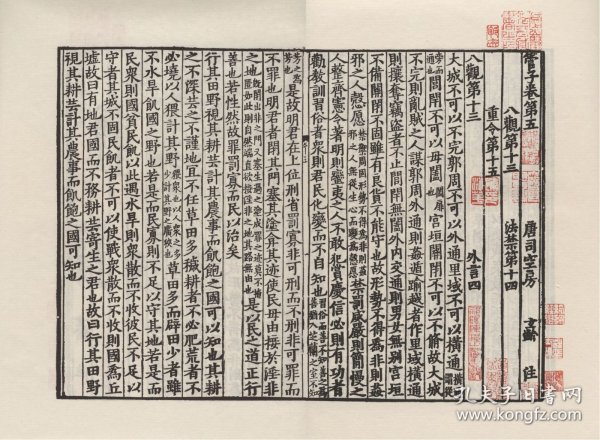 管子卷第五 唐司空房 玄齡 注
八觀第十三 法禁第十四
重令第十五
觀第十三 外言四
大城不可以不完郭周不可以外通里域不可以橫通
閭閈不可以毋闔 宮垣關閉不可以不脩故大城
不完則亂賊之人謀郭周外通則姦遁踰越者作里域橫通
則攘奪竊盜者不止閭閈無闔外內交通則男女無別宮垣
不備關閉不固雖有良貨不能守也故形勢不得爲非則姦
邪之人慤愿 禁罰威嚴則簡慢之
人整齊憲令著明則蠻夷之人不敢犯賞慶信必則有功者
勸教訓習俗者衆則君民化變而不自知也
是故明君在上位刑省罰寡非可刑而不刑非可罪而
不罪也明君者閉其門塞其塗弇其迹使民毋由接於淫非
之地 是以民之道正行
善也若性然故罪罰寡而民以治矣
行其田野視其耕芸計其農事而飢飽之國可以知也其耕
之不深芸之不謹地宜不任草田多穢耕者不必肥荒者不
必墝以人猥計其野 草田多而辟田少者雖
不水旱飢國之野也若是而民寡則不足以守其地若是而
民衆則國貧民飢以此遇水旱則衆散而不收彼民不足以
守者其城不固民飢者不可以使戰衆散而不收則國爲丘
墟故曰有地君國而不務耕芸寄生之君也故曰行其田野
視其耕芸計其農事而飢飽之國可知也
孔夫子旧书网
www.kongfz.com